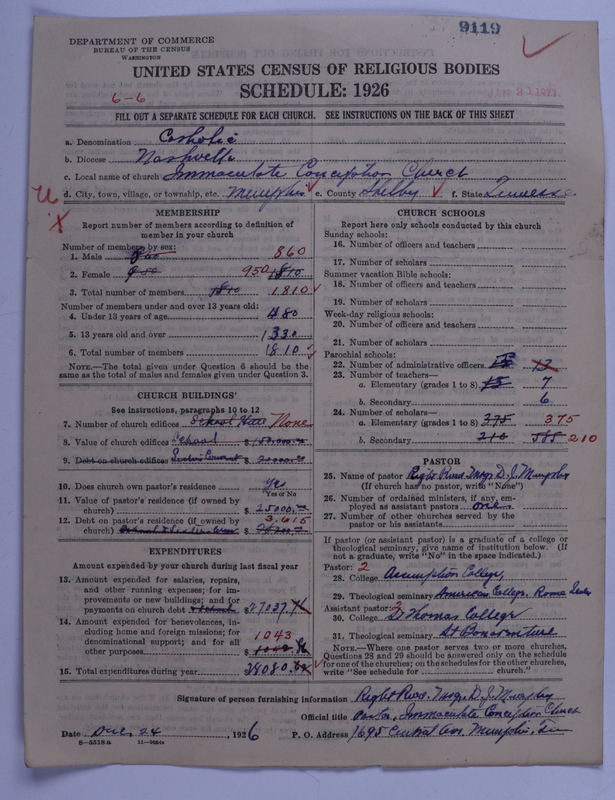 9119
DEPARTMENT OF COMMERCE
BUREAU OF THE CENSUS
WASHINGTON
UNITED STATES CENSUS OF RELIGIOUS BODIES
SCHEDULE: 1926
6-6
JAN 1927
FILL OUT A SEPARATE SCHEDULE FOR EACH CHURCH. SEE INSTRUCTIONS ON THE BACK OF THIS SHEET
a. Denomination Catholic
b. Diocese Nashville
c. Local name of church Immaculate Conception Church
d. City, town, village, or township, etc. Memphis e. County Shelby f. State Tennessee
MEMBERSHIP
Report number of members according to definition of member in your church
Number of members by sex:
1. Male 860 860
2. Female 950 950 1810
3. Total number of members 1810 1810
Number of members under and over 13 years old:
4. Under 13 years of age 480
5. 13 years old and over 1330
6. Total number of members 1810
NOTE.—The total given under Question 6 should be the same as the total of males and females given under Question 3.
CHURCH BUILDINGS
See instructions, paragraphs 10 to 12
7. Number of church edifices School Hall None
8. Value of church edifices School $ 150,000.00
9. Debt on church edifices $ 20000.00
10. Does church own pastor's residence Yes
Yes or No
11. Value of pastor's residence (if owned by church) $ 25000.00
12. Debt on pastor's residence (if owned by church) $ 3,615
EXPENDITURES
Amount expended by your church during last fiscal year
13. Amount expended for salaries, repairs, and other running expenses; for improvements or new buildings; and for payments on church debt $ 27037
14. Amount expended for benevolences, including home and foreign missions; for denominational support; and for all other purposes $ 1043
15. Total expenditures during year $ 28080
CHURCH SCHOOLS
Report here only schools conducted by this church
Sunday schools:
16. Number of officers and teachers
17. Number of scholars
Summer vacation Bible schools:
18. Number of officers and teachers
19. Number of scholars
Week-day religious schools:
20. Number of officers and teachers
21. Number of scholars
Parochial schools:
22. Number of administrative officers 13
23. Number of teachers—
a. Elementary (grades 1 to 8) 13 7
b. Secondary 6
24. Number of scholars—
a. Elementary (grades 1 to 8) 375 375
b. Secondary 210 585 210
PASTOR
25. Name of pastor Right Revd. Msgr. D. J. Murphy
(If church has no pastor, write "None")
26. Number of ordained ministers, if any, employed as assistant pastors one
27. Number of other churches served by the pastor or his assistants
If pastor (or assistant pastor) is a graduate of a college or theological seminary, give name of institution below. (If not a graduate, write "No" in the space indicated.)
Pastor: 2
28. College Assumption College,
29. Theological seminary American College. Rome
Assistant pastor: 2
30. College St Thomas College
31. Theological seminary St Bonaventure
NOTE.—Where one pastor serves two or more churches, Questions 28 and 29 should be answered only on the schedule for one of the churches; on the schedules for the other churches, write "See schedule for church."
Signature of person furnishing information Right Revd. Msgr. D. J. Murphy
Official title Pastor, Immaculate Conception Church
Date Dec. 24, 1926 P. O. Address 1695 Central Ave. Memphis, Tenn
8-5518a